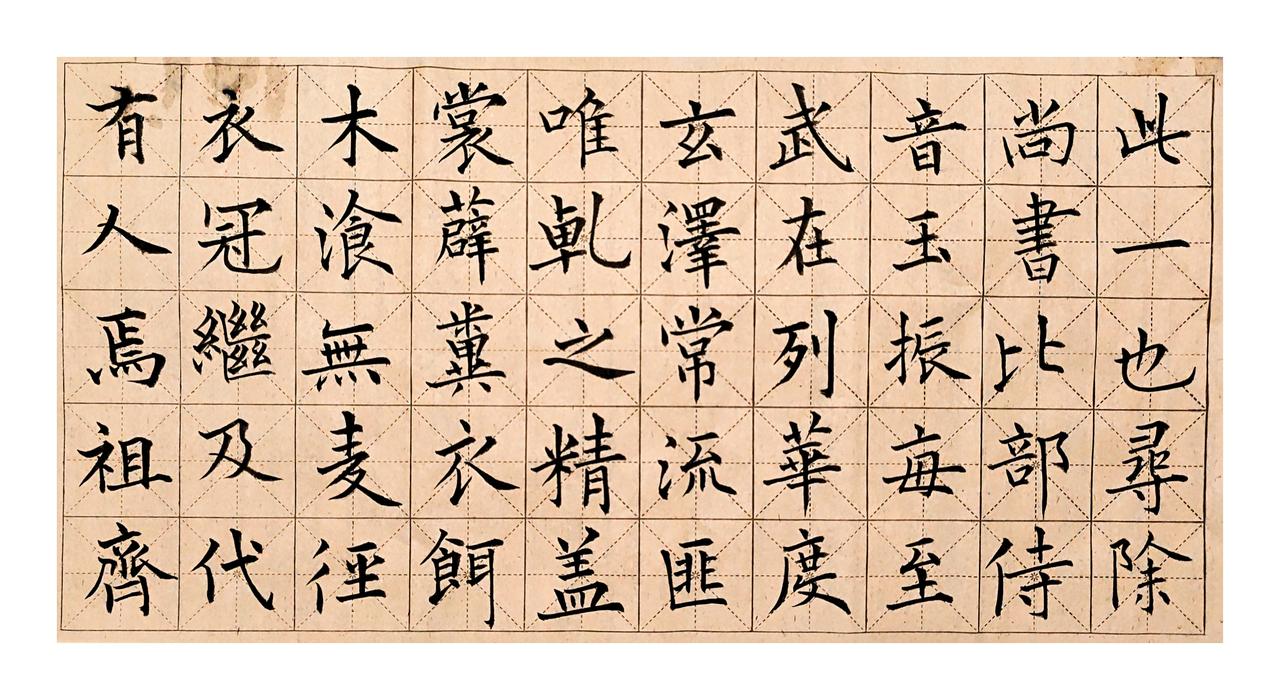 此一也尋除
尚書比部侍
音玉振每至
武在列華度
玄澤常流匪
唯軋之精盖
裳薜糞衣餌
木飡無麦徑
衣冠繼及代
有人焉祖齊